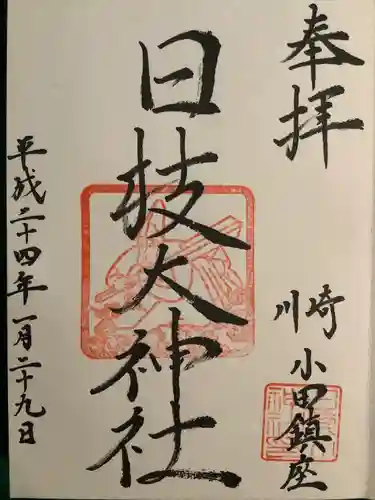 奉拝
川崎小田鎮座
日枝大神社
平成二十四年一月二十九日